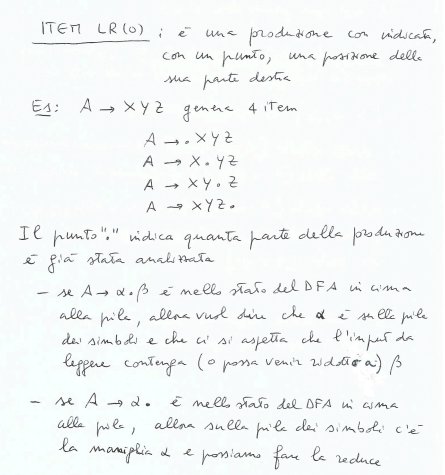 ITEM LR(0) : è una produzione con indicata,
con un punto, una posizione della
sua parte destra
Es: A → XYZ genera 4 item
A → .XYZ
A → X.YZ
A → XY.Z
A → XYZ.
Il punto "." indica quanta parte della produzione
è già stata analizzata
- se A → α.β è nello stato del DFA in cima
alla pila, allora vuol dire che α è sulla pila
dei simboli e che ci si aspetta che l'input da
leggere contenga (o possa venir ridotto a) β
- se A → α. è nello stato del DFA in cima
alla pila, allora sulla pila dei simboli c'è
la maniglia α e possiamo fare la reduce